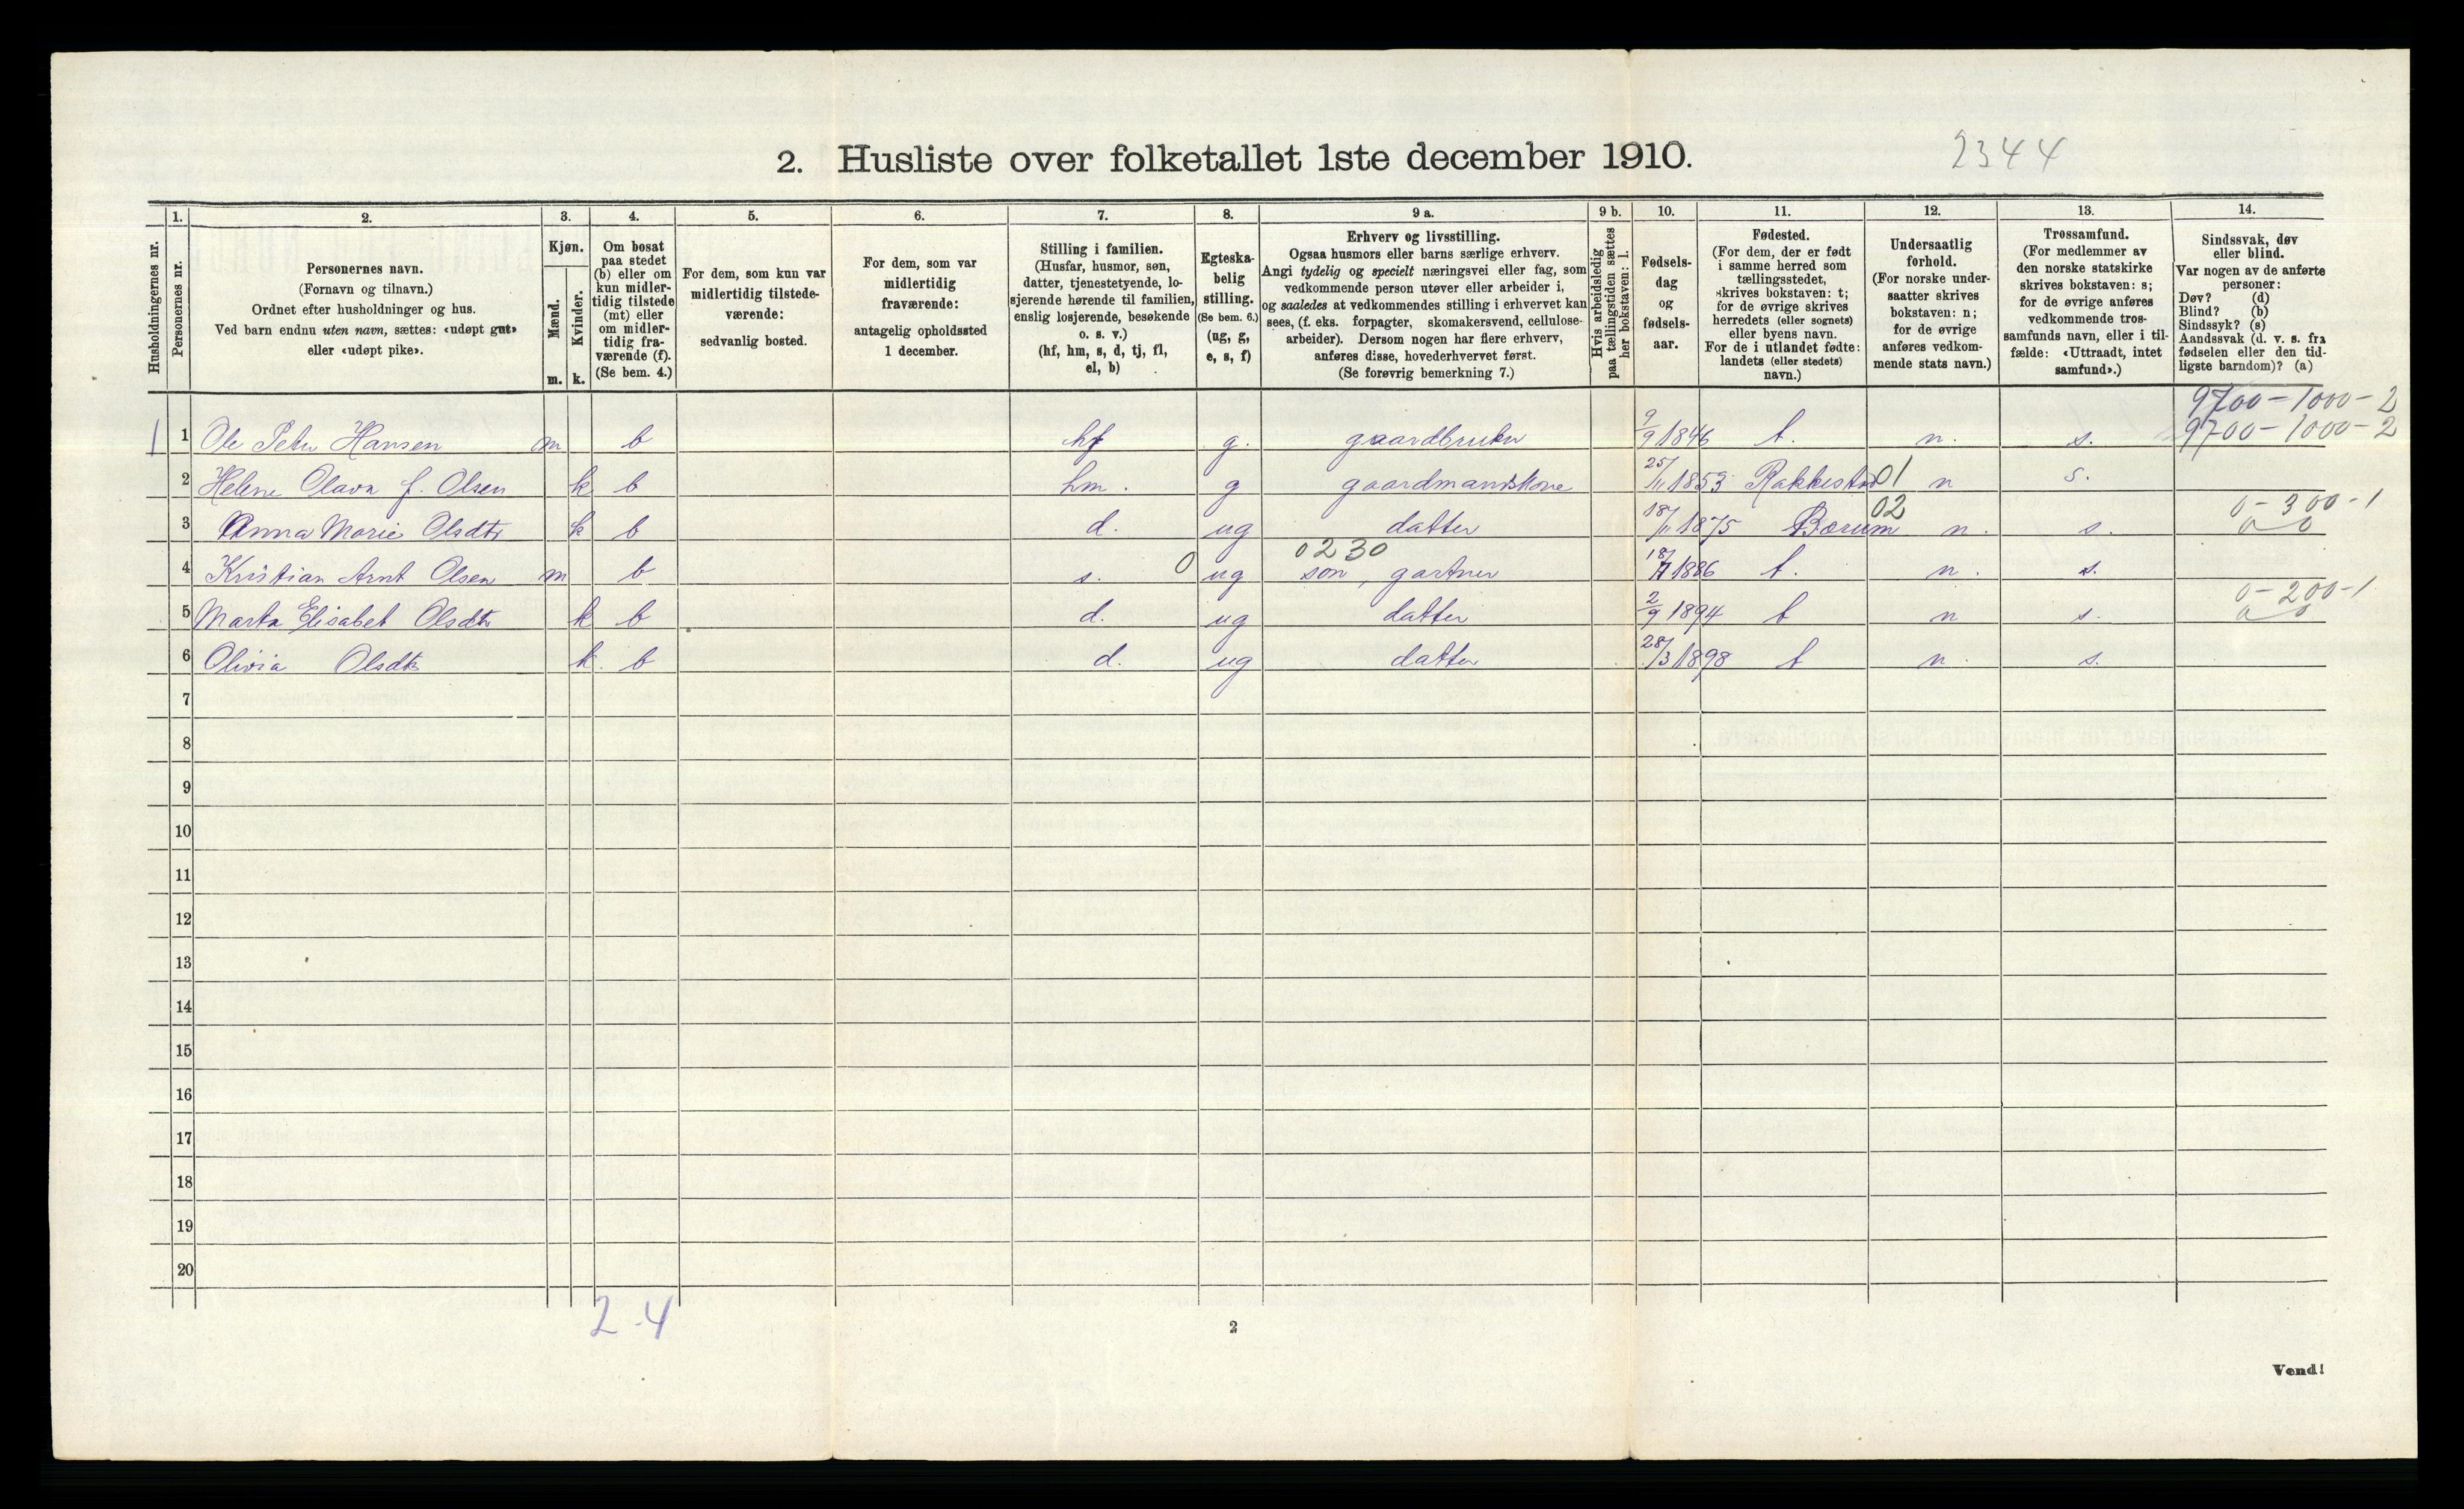 2. Husliste over folketallet 1ste december 1910.
2344
1. 2. 3. 4. 5. 6. 7. 8. 9 a. 9 b. 10. 11. 12. 13. 14.
Husholdningernes nr.
Personernes nr.
Personernes navn.
(Fornavn og tilnavn.)
Ordnet efter husholdninger og hus.
Ved barn endnu uten navn, sættes: «udøpt gut»
eller «udøpt pike».
Kjøn.
Mænd.
Kvinder.
m. k.
Om bosat
paa stedet
(b) eller om
kun midler-
tidig tilstede
(mt) eller
om midler-
tidig fra-
værende (f).
(Se bem. 4.)
For dem, som kun var
midlertidig tilstede-
værende:
sedvanlig bosted.
For dem, som var
midlertidig
fraværende:
antagelig opholdssted
1 december.
Stilling i familien.
(Husfar, husmor, søn,
datter, tjenestetyende, lo-
sjerende hørende til familien,
enslig losjerende, besøkende
o. s. v.)
(hf, hm, s, d, tj, fl,
el, b)
Egteska-
belig
stilling.
(Se bem. 6.)
(ug, g,
e, s, f)
Erhverv og livsstilling.
Ogsaa husmors eller barns særlige erhverv.
Angi tydelig og specielt næringsvei eller fag, som
vedkommende person utøver eller arbeider i,
og saaledes at vedkommendes stilling i erhvervet kan
sees, (f. eks. forpagter, skomakersvend, cellulose-
arbeider). Dersom nogen har flere erhverv,
anføres disse, hovederhvervet først.
(Se forøvrig bemerkning 7.)
Hvis arbeidsledig
paa tællingstiden sættes
her bokstaven: l.
Fødsels-
dag
og
fødsels-
aar.
Fødested.
(For dem, der er født
i samme herred som
tællingsstedet,
skrives bokstaven: t;
for de øvrige skrives
herredets (eller sognets)
eller byens navn.
For de i utlandet fødte:
landets (eller stedets)
navn.)
Undersaatlig
forhold.
(For norske under-
saatter skrives
bokstaven: n;
for de øvrige
anføres vedkom-
mende stats navn.)
Trossamfund.
(For medlemmer av
den norske statskirke
skrives bokstaven: s;
for de øvrige anføres
vedkommende tros-
samfunds navn, eller i til-
fælde: «Uttraadt, intet
samfund».)
Sindssvak, døv
eller blind.
Var nogen av de anførte
personer:
Døv? (d)
Blind? (b)
Sindssyk? (s)
Aandssvak (d. v. s. fra
fødselen eller den tid-
ligste barndom)? (a)
9700-1000-2
1 1 Ole Peter Hansen m b hf g. gaardbruker 9/9 1846 t. n. s. 9700-1000-2
2 Helene Olava f. Olsen k b hm. g gaardmandskone 25/11 1853 Rakkestad 01 n s.
02 0-300-1
3 Anna Marie Olsdtr k b d. ug datter 18/11 1875 Bærum n. s.
0230
4 Kristian Arnt Olsen m b s. 0 ug søn, gartner 1886 t. n. s.
0-200-1
5 Marta Elisabet Olsdtr k b d. ug datter 2/9 1894 t n s.
6 Olivia Olsdtr k. b d. ug datter 28/3 1898 t n. s.
7
8
9
10
11
12
13
14
15
16
17
18
19
20
2-4
2
Vend!